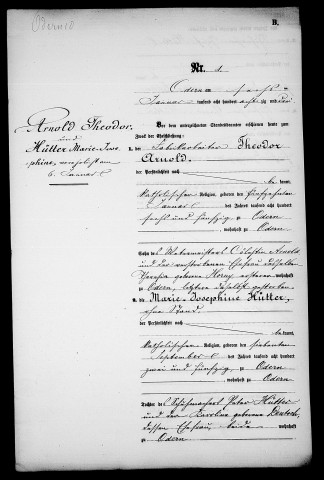 Oderen
B.
Nr. 1.
Odern am sechs
Januar tausend acht hundert achtzig und drei
Arnold Theodor
und
Hütter Marie-Jose-
phine, verehelicht am
6. Januar
Vor dem unterzeichneten Standesbeamten erschienen heute zum
Zweck der Eheschließung:
1. der Fabrikarbeiter Theodor
Arnold,
der Persönlichkeit nach
kannt,
katholischer Religion, geboren den fünfzehnten
Januar des Jahres tausend acht hundert
sechs und fünfzig zu Odern
, wohnhaft
zu Odern,
Sohn des Webermeisters Cölestin Arnold
und der verstorbenen Ehefrau desselben
Theresia geborene Horny, ersterer wohnhaft
zu Odern, letztere daselbst gestorben
2. die Marie-Josephine Hütter,
ohne Stand,
der Persönlichkeit nach
be kannt,
katholischer Religion, geboren den siebenten
September des Jahres tausend acht hundert
zwei und fünfzig zu Odern
, wohnhaft zu Odern
Tochter des Schuhmachers Peter Hütter
und der Karolina geborene
dessen Ehefrau, beide wohnhaft
zu Odern